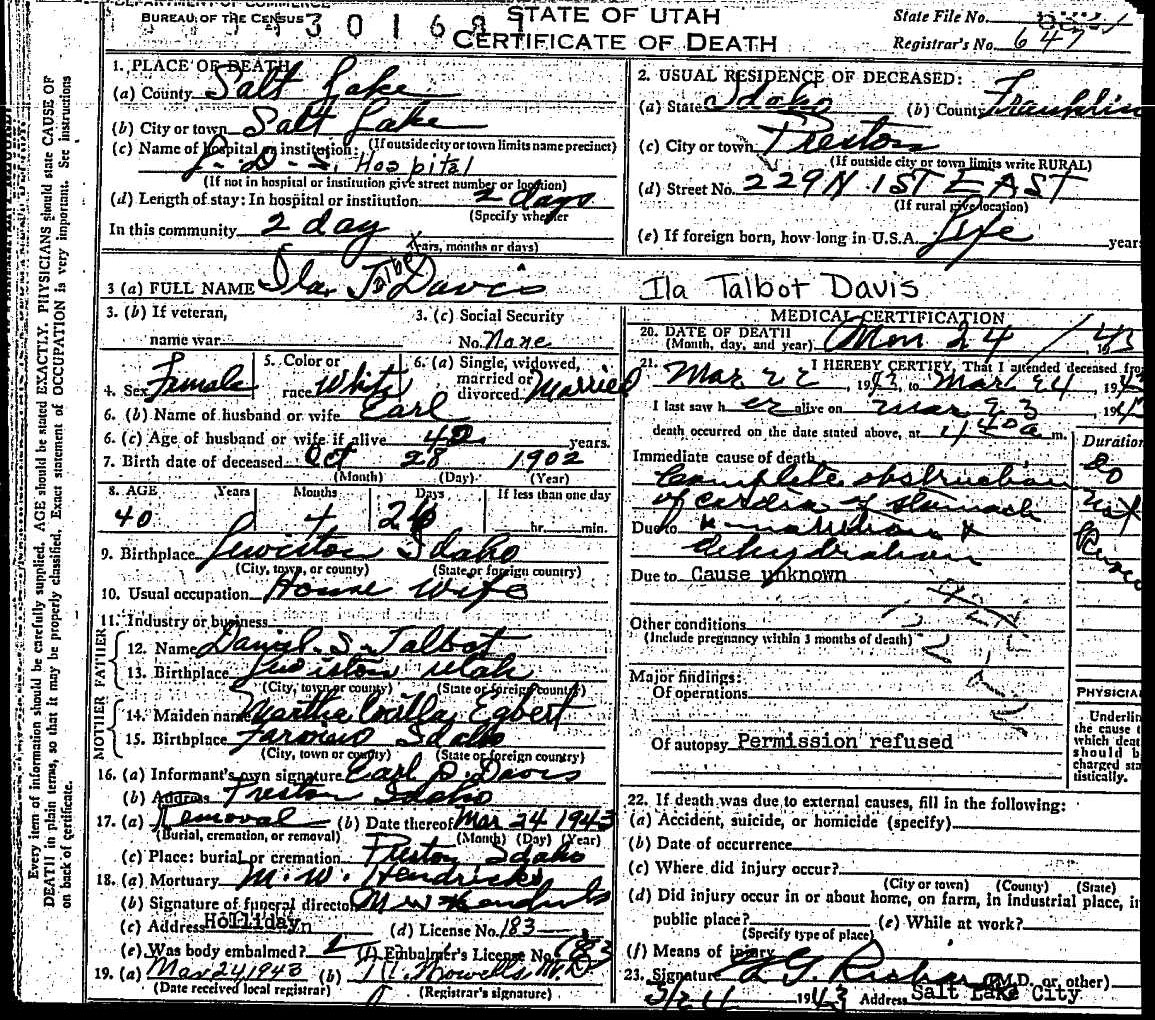 BUREAU OF THE CENSUS
STATE OF UTAH
CERTIFICATE OF DEATH
State File No.
Registrar's No. 647
Every item of information should be carefully supplied. AGE should be stated EXACTLY. PHYSICIANS should state CAUSE OF
DEATH in plain terms, so that it may be properly classified. Exact statement of OCCUPATION is very important. See instructions
on back of certificate.
1. PLACE OF DEATH
(a) County Salt Lake
(b) City or town Salt Lake
(If outside city or town limits name precinct)
(c) Name of hospital or institution:
L-D-S. Hospital
(If not in hospital or institution give street number or location)
(d) Length of stay: In hospital or institution 2 days
(Specify whether
In this community 2 day
years, months or days)
2. USUAL RESIDENCE OF DECEASED:
(a) State Idaho (b) County Franklin
(c) City or town Preston
(If outside city or town limits write RURAL)
(d) Street No. 229 N. 1ST EAST
(If rural give location)
(e) If foreign born, how long in U.S.A. Life years
3 (a) FULL NAME Ila Talbot Davis
Ila Talbot Davis
3. (b) If veteran,
name war
3. (c) Social Security
No. None
4. Sex Female
5. Color or
race White
6. (a) Single, widowed,
married or
divorced Married
6. (b) Name of husband or wife Earl
6. (c) Age of husband or wife if alive 42 years.
7. Birth date of deceased Oct 28 1902
(Month) (Day) (Year)
8. AGE Years Months Days If less than one day
40 4 26 hr. min.
9. Birthplace Lewiston Idaho
(City, town, or county) (State or foreign country)
10. Usual occupation House Wife
11. Industry or business
FATHER
12. Name Daniel S. Talbot
13. Birthplace Lewiston Utah
(City, town or county) (State or foreign country)
MOTHER
14. Maiden name Martha Egbert
15. Birthplace Idaho
(City, town or county) (State or foreign country)
16. (a) Informant's own signature Earl D. Davis
(b) Address Preston Idaho
17. (a) Removal (b) Date thereof Mar 24 1943
(Burial, cremation, or removal) (Month) (Day) (Year)
(c) Place: burial or cremation Preston Idaho
18. (a) Mortuary M. W. Hendricks
(b) Signature of funeral director M W Hendricks
(c) Address Holliday (d) License No. 183
(e) Was body embalmed? (f) Embalmer's License No. 183
19. (a) Mar 24 1943 (b) M.D.
(Date received local registrar) (Registrar's signature)
MEDICAL CERTIFICATION
20. DATE OF DEATH
(Month, day, and year) 24 1943
21. I HEREBY CERTIFY, That I attended deceased from
Mar 22 1943, to Mar 24, 1943
I last saw her alive on Mar 23, 194
death occurred on the date stated above, at 1 40 a m.
Duration
Immediate cause of death
Complete obstruction
of cardia of stomach
Due to
dehydration
Due to Cause unknown
Other conditions
(Include pregnancy within 3 months of death)
Major findings:
Of operations
Of autopsy Permission refused
PHYSICIA
Underlin
the cause t
which deat
should b
charged sta
tistically.
22. If death was due to external causes, fill in the following:
(a) Accident, suicide, or homicide (specify)
(b) Date of occurrence
(c) Where did injury occur?
(City or town) (County) (State)
(d) Did injury occur in or about home, on farm, in industrial place, in
public place? (e) While at work?
(Specify type of place)
(f) Means of injury
23. Signature (M.D. or other)
3/24 1943 Address Salt Lake City